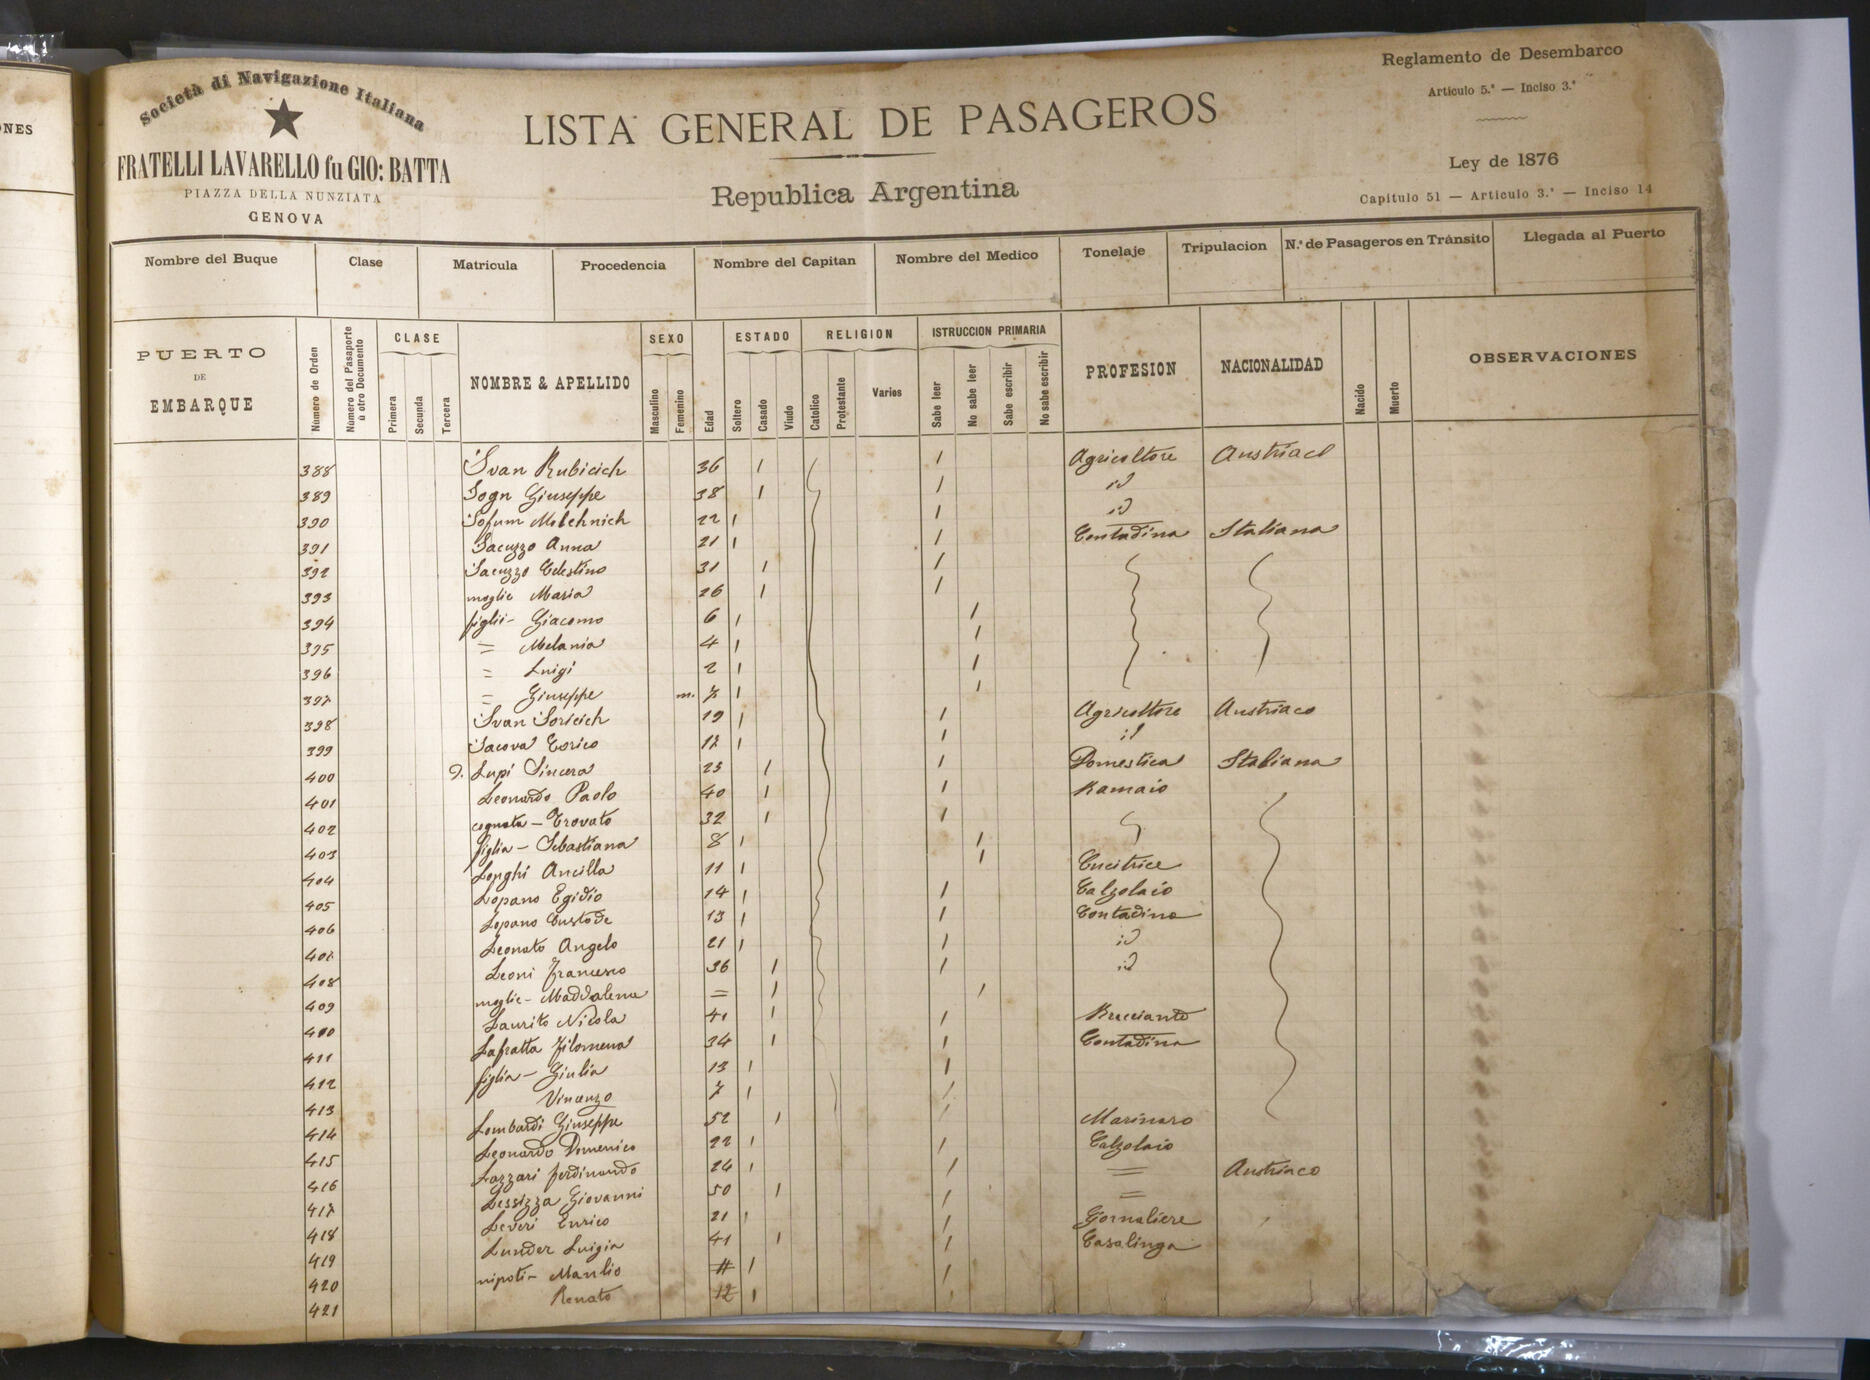 NES
Società di Navigazione Italiana
FRATELLI LAVARELLO fu GIO: BATTA
PIAZZA DELLA NUNZIATA
GENOVA
LISTA GENERAL DE PASAGEROS
Republica Argentina
Reglamento de Desembarco
Articulo 5.º — Inciso 3.º
Ley de 1876
Capitulo 51 — Articulo 3.º — Inciso 14
Nombre del Buque Clase Matricula Procedencia Nombre del Capitan Nombre del Medico Tonelaje Tripulacion N.º de Pasageros en Tránsito Llegada al Puerto
PUERTO DE EMBARQUE Numero de Orden Número del Pasaporte ú otro Documento CLASE Primera Secunda Tercera NOMBRE & APELLIDO SEXO Masculino Femenino Edad ESTADO Soltero Casado Viudo RELIGION Catolico Protestante Varios ISTRUCCION PRIMARIA Sabe leer No sabe leer Sabe escribir No sabe escribir PROFESION NACIONALIDAD Nacido Muerto OBSERVACIONES
388 Ivan Rubicich 36 Agricoltore Austriaco
389 Iogn Giuseppe 38 id
390 22 id
391 Iacuzzo Anna 21 Contadina Italiana
392 Iacuzzo Celestino 31
393 moglie Maria 26
394 figlii - Giacomo 6
395 = Melania 4
396 = Luigi 2
397 = Giuseppe m. 7
398 Ivan 19 Agricoltore Austriaco
399 17 id
400 Lupi Sincera 23 Domestica Italiana
401 Leonardo Paolo 40 Ramaio
402 cognata - Trovato 32
403 figlia - Sebastiana 8
404 Longhi Ancilla 11 Cucitrice
405 Lopano Egidio 14 Calzolaio
406 Lopano Custode 13 Contadino
407 Leonato Angelo 21 id
408 Leoni Francesco 36 id
409 moglie - Maddalena =
410 Laurito Nicola 41
411 Lafratta Filomena 34 Contadina
412 figlia - Giulia 13
413 Vincenzo 7
414 Lombardi Giuseppe 52 Marinaro
415 Leonardo Domenico 22 Calzolaio
416 Lazzari Ferdinando 24 = Austriaco
417 Lessizza Giovanni 50 =
418 Leveri Enrico 21 Giornaliere
419 Lunder Luigia 41 Casalinga
420 nipoti - Manlio 11
421 Renato 12